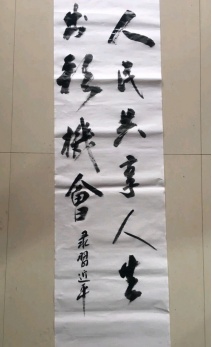 人民共享人生
出彩機會
录習近平